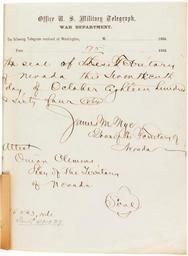 Office U. S. Military Telegraph,
WAR DEPARTMENT.
The following Telegram received at Washington, M. 186
From 186
175
the seal of this Territory
of Nevada this Seventeenth
day of October Eighteen hundred
& Sixty four
James W. Nye
Governor Territory of
Nevada
Attest
Orion Clemens
Secy of the Territory
of Nevada
Seal